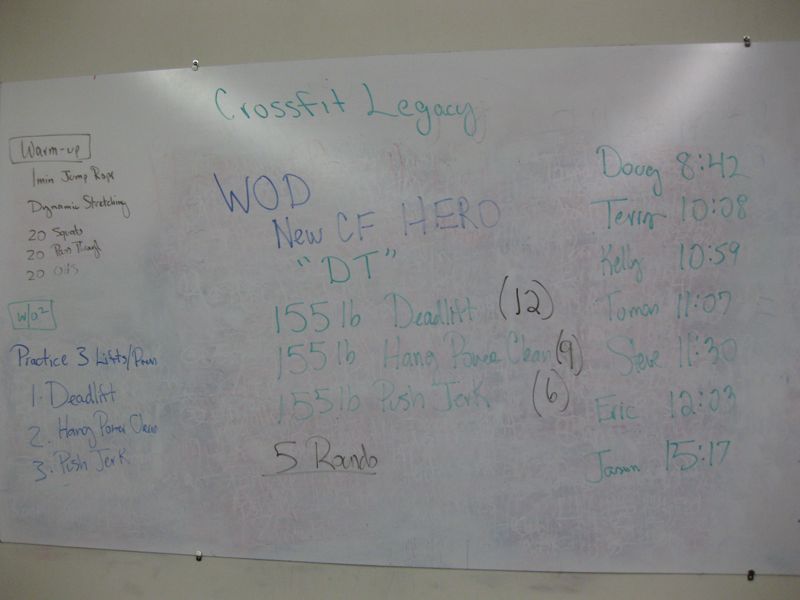 Crossfit Legacy
Warm-up
1min Jump Rope
Dynamic Stretching
20 Squats
20 Pass Through
20
w/o²
Practice 3 Lifts/
1. Deadlift
2. Hang Power Clean
3. Push Jerk
WOD
New CF HERO
"DT"
155 lb Deadlift (12)
155 lb Hang Power Clean (9)
155 lb Push Jerk (6)
5 Rounds
Doug 8:42
Terry 10:08
Kelly 10:59
11:07
Steve 11:30
Eric 12:03
Jason 15:17